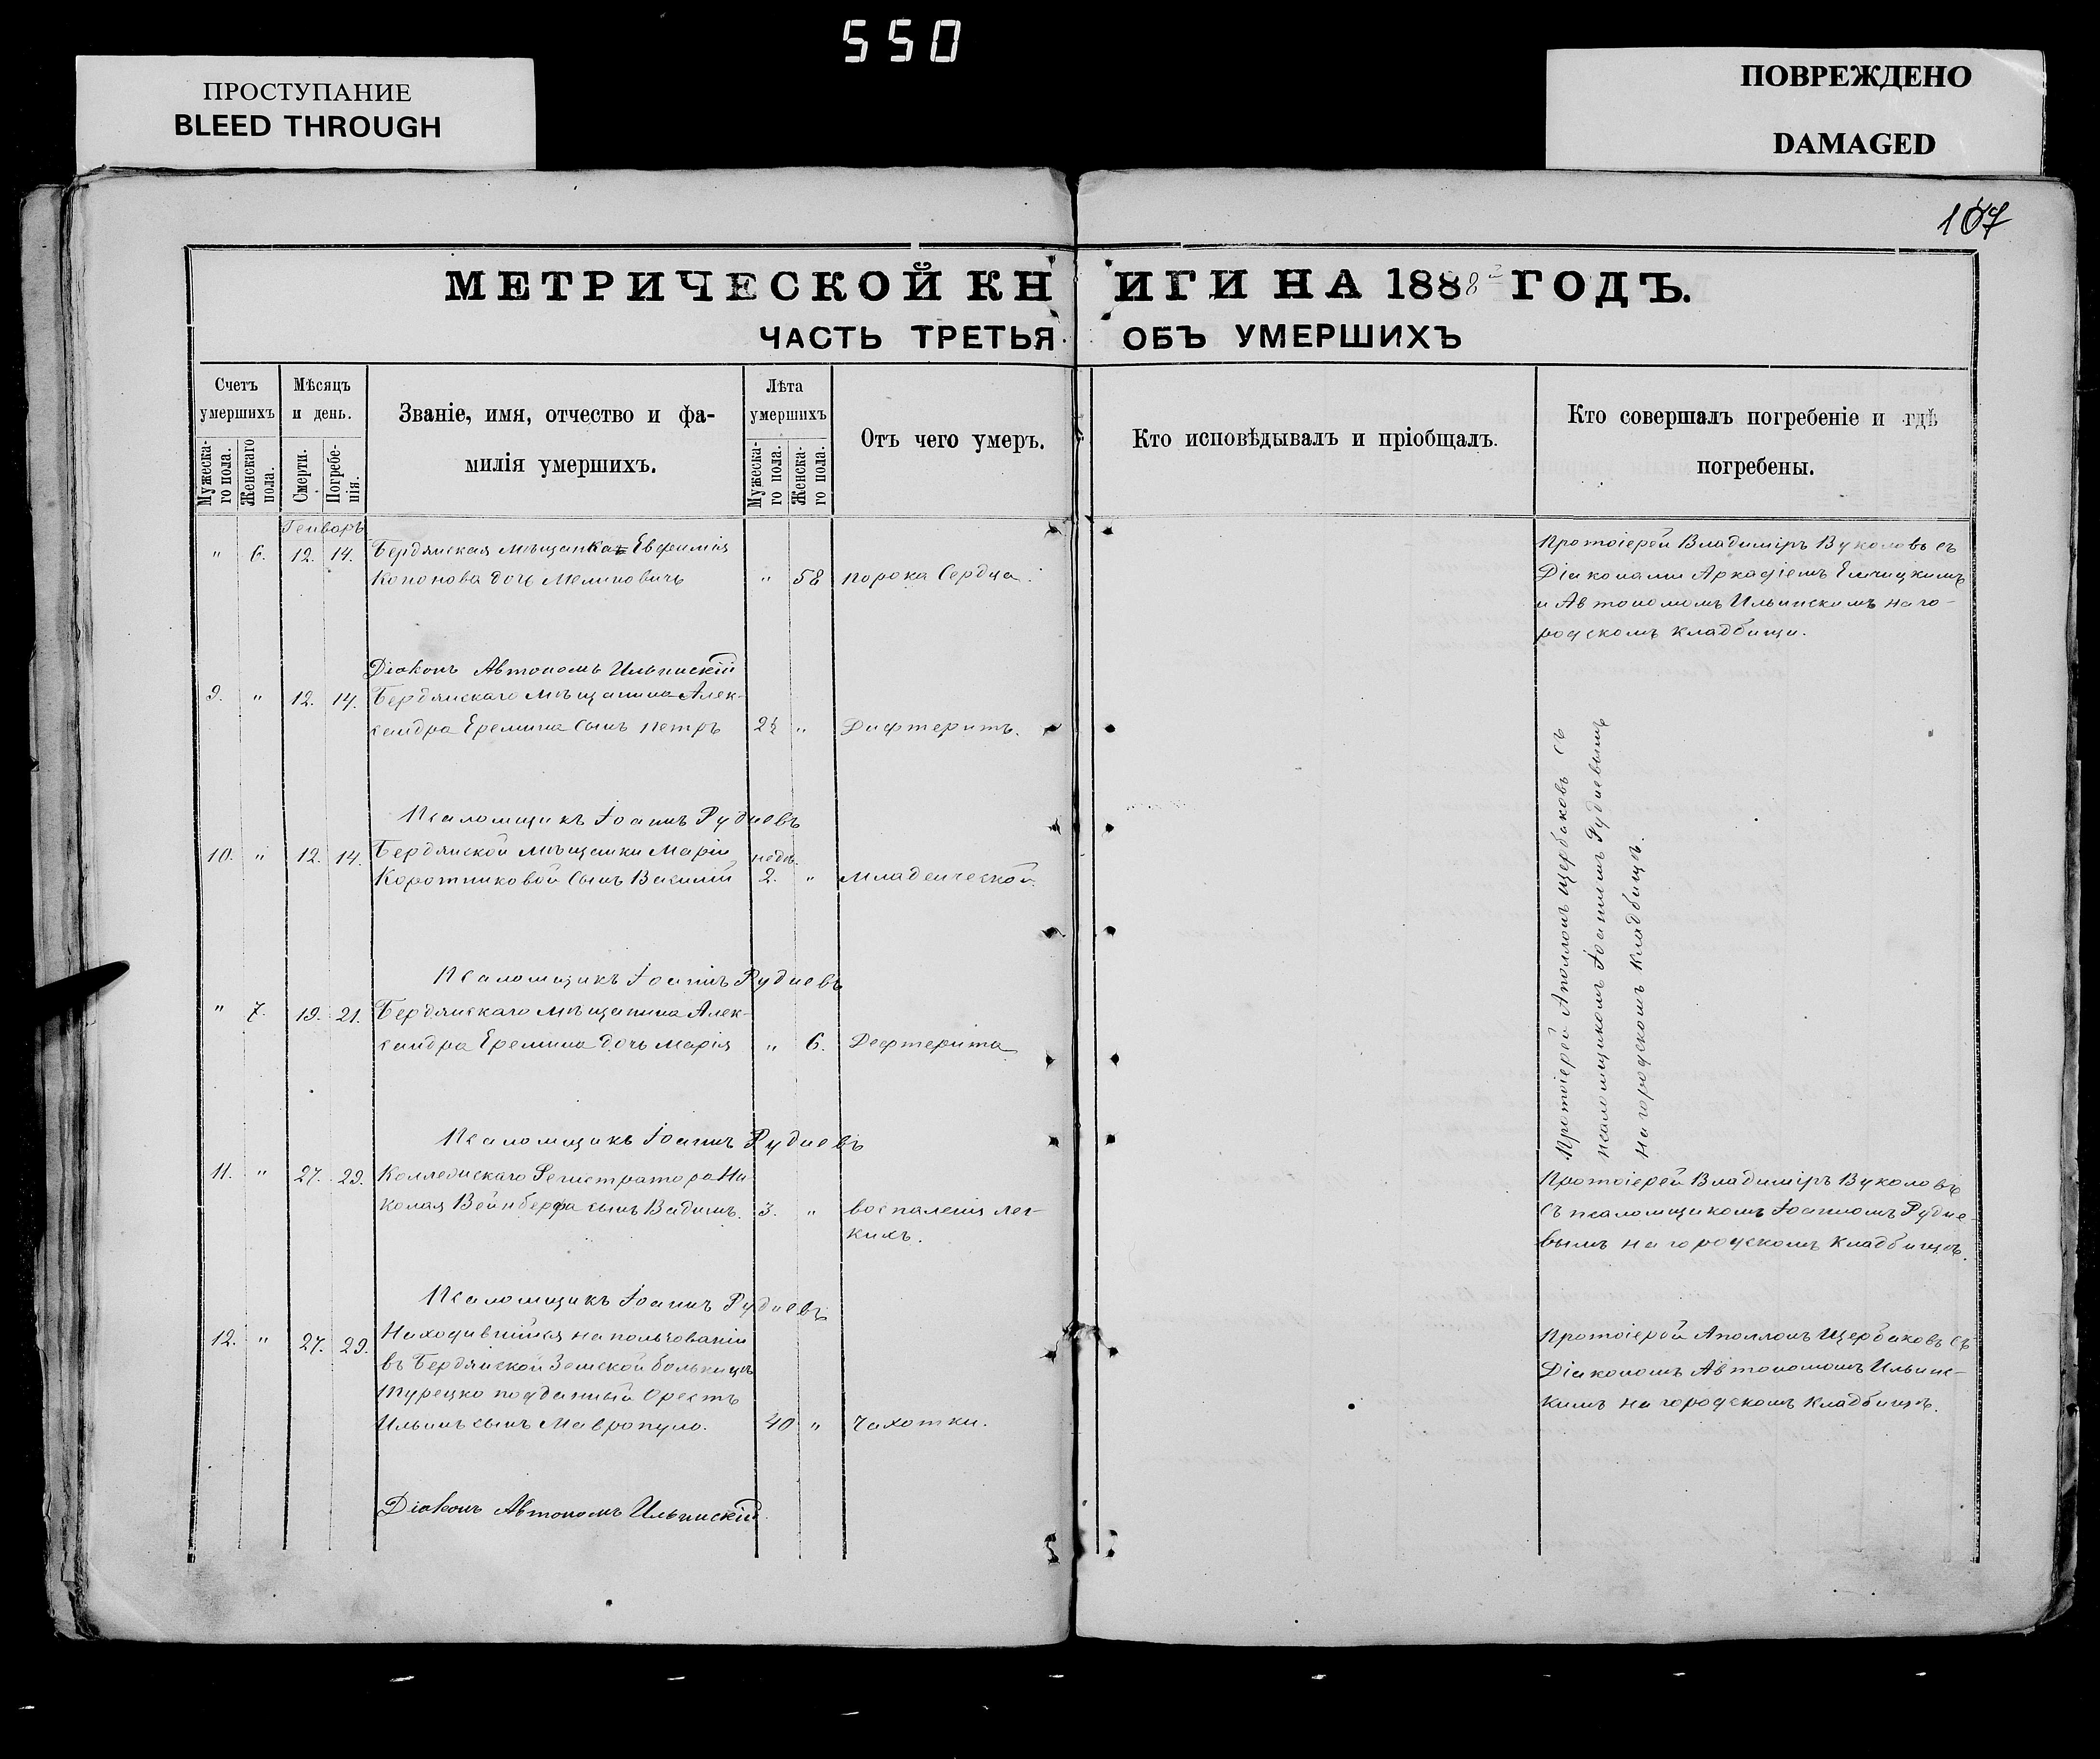 550
ПРОСТУПАНИЕ
BLEED THROUGH
ПОВРЕЖДЕНО
DAMAGED
107
МЕТРИЧЕСКОЙ КНИГИ НА 1888 ГОДЪ.
ЧАСТЬ ТРЕТЬЯ ОБЪ УМЕРШИХЪ
Счетъ умершихъ
Мужеска-го пола.
Женскаго пола.
Мѣсяцъ и день.
Смерти.
Погребе-нія.
Званіе, имя, отчество и фа-
милія умершихъ.
Лѣта умершихъ
Мужеска-го пола.
Женска-го пола.
Отъ чего умеръ.
Кто исповѣдывалъ и пріобщалъ.
Кто совершалъ погребеніе и гдѣ
погребены.
Генваръ
" 6. 12. 14. Бердянская мѣщанка Евфимія
Кононова дочь " 58 порока Сердца.
Протоіерей Владиміръ Вуколовъ съ
Діаконами Аркадіемъ
и Автономомъ Ильинскимъ на го-
родскомъ кладбищи.
Діаконъ Автономъ Ильинскій
9. " 12. 14. Бердянскаго мѣщанина Алек-
сандра Еремина сынъ Петръ 2½ " Дифтеритъ.
Псаломщикъ Іоаннъ Рудневъ
10. " 12. 14. Бердянской мѣщанки Маріи недѣ.
Коротниковой сынъ Василій 2. " Младенческой.
Псаломщикъ Іоаннъ Рудневъ
" 7. 19. 21. Бердянскаго мѣщанина Алек-
сандра Еремина дочь Марія " 6. Дефтерита
Протоіерей Аполлонъ Щербаковъ съ
псаломщикомъ Іоанномъ Рудневымъ
на городскомъ кладбищѣ.
Псаломщикъ Іоаннъ Рудневъ
11. " 27. 29. Коллежскаго Регистратора Ни
колая Вейнберга сынъ Вадимъ. 3. " воспаленія лег-
кихъ.
Протоіерей Владиміръ Вуколовъ
съ псаломщикомъ Іоанномъ Рудне-
вымъ на городскомъ кладбищѣ.
Псаломщикъ Іоаннъ Рудневъ
12. " 27. 29. Находившійся на пользованіи
въ Бердянской Земской больницѣ
Турецко подданный Орестъ
Ильинъ сынъ Мавропуло. 40 " Чахотки.
Протоіерей Аполлонъ Щербаковъ съ
Діакономъ Автономомъ Ильинс-
кимъ на городскомъ кладбищѣ.
Діаконъ Автономъ Ильинскій